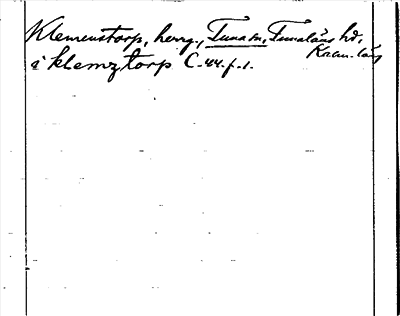 Klemenstorp, herrg., Tuna sn, Tunaläns hd,
Kalm. län
i klemztorp C-44-f-1.